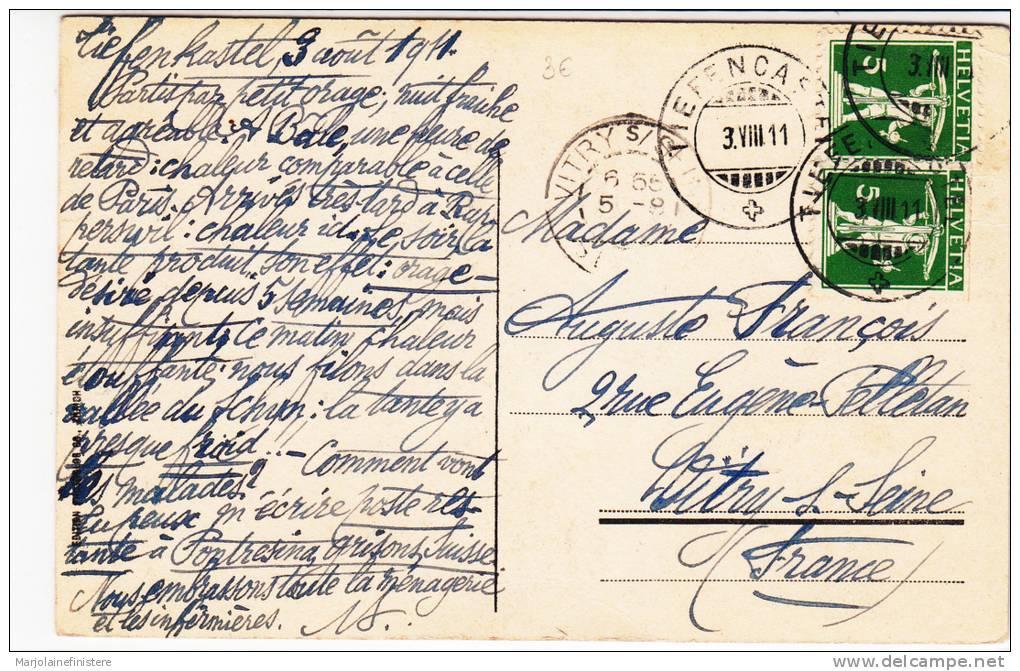 Tiefenkastel, 3 août 1911.
Partis par petit orage; nuit fraîche
et agréable. A Bâle, une heure de
retard: chaleur comparable à celle
de Paris. Arrivés très tard à Rap-
perswil: chaleur id. Le soir, la
tante produit son effet: orage-
désiré depuis 5 semaines, mais
insuffisant. Ce matin, chaleur
étouffante; nous filons dans la
vallée du Schyn: la tante y a
presque froid... - Comment vont
les malades?
Tu peux m'écrire poste res-
tante à Pontresina, Grisons, Suisse
Nous embrassons toute la ménagerie
et les infirmières.
3€
VITRY S/
6 55
5 -8 1
TIEFENCASTEL
3.VIII.11
3.VIII.11
3.VIII.11
HELVETIA
5
HELVETIA
5
Madame
Auguste François
2 rue Eugène-Pelletan
Vitry-s-Seine
(France)
EDITION
Marjolainefinistere
delcampe.net